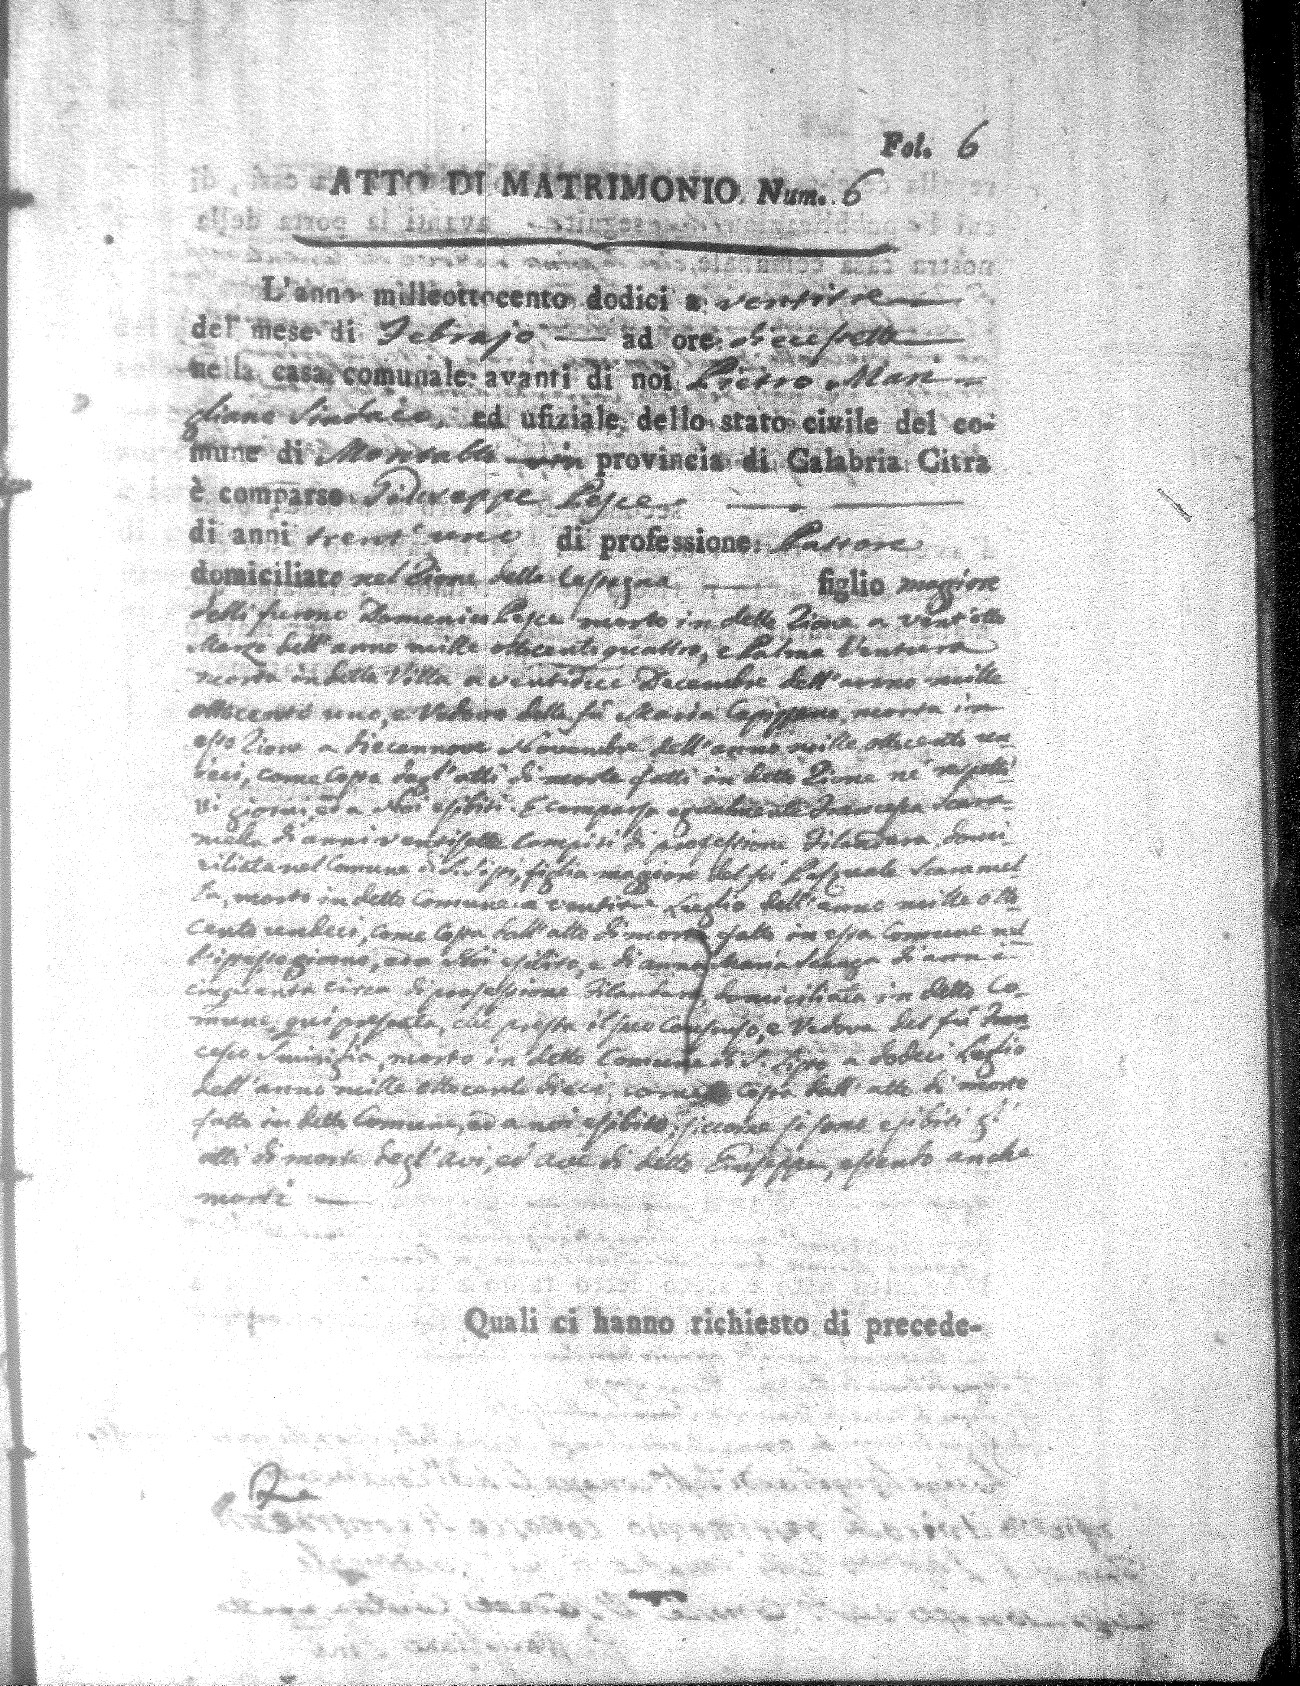 Fol. 6
ATTO DI MATRIMONIO Num. 6
L'anno milleottocento dodici a ventitre
del mese di Febrajo ad ore diecisette
nella casa comunale avanti di noi Pietro Mari-
gliano Sindaco, ed ufiziale dello stato civile del co-
mune di Montalto in provincia di Calabria Citra
è comparso Giuseppe Pesce
di anni trent'uno di professione Pastore
domiciliato nel Zione della figlio maggiore
delli furono Domenico Pesce morto in detto Zione a vent'otto
Marzo dell'anno mille ottocento quattro, e Palma Ventura
morta in detta Villa a ventidieci Decembre dell'anno mille
ottocento uno, e Vedovo della fù Maria morta in
esso Zione a diecennove Novembre dell'anno mille ottocento un-
dici, come copia degl'atti di morte fatti in detto Zione ne' rispetti-
vi giorni, ed a Noi esibiti. E comparsa egualmente Francesca Scara-
mella di anni ventisette compiti di professione Filandara, domi-
ciliata nel Comune di S. Sisti, figlia maggiore del fù Pasquale Scaramel-
la, morto in detto Comune a Luglio dell'anno mille otto-
cento undeci, come copia dall'atto di morte fatto in essa Comune nel
l'istesso giorno, ed a Noi esibito, e di Anna Maria di anni
cinquanta circa di professione Filandara, domiciliata in detto Co-
mune, qui presente, che presta il suo Consenso, e Vedova del fù Fran-
cesco morto in detto Comune di S. a dodeci Luglio
dell'anno mille ottocento dieci, come copia dall'atto di morte
fatta in detto Comune, ed a noi esibito, siccome si sono esibiti gl'
atti di morte degl'Avi, ed Ave di detto Giuseppe, essendo anche
morti
Quali ci hanno richiesto di precede-